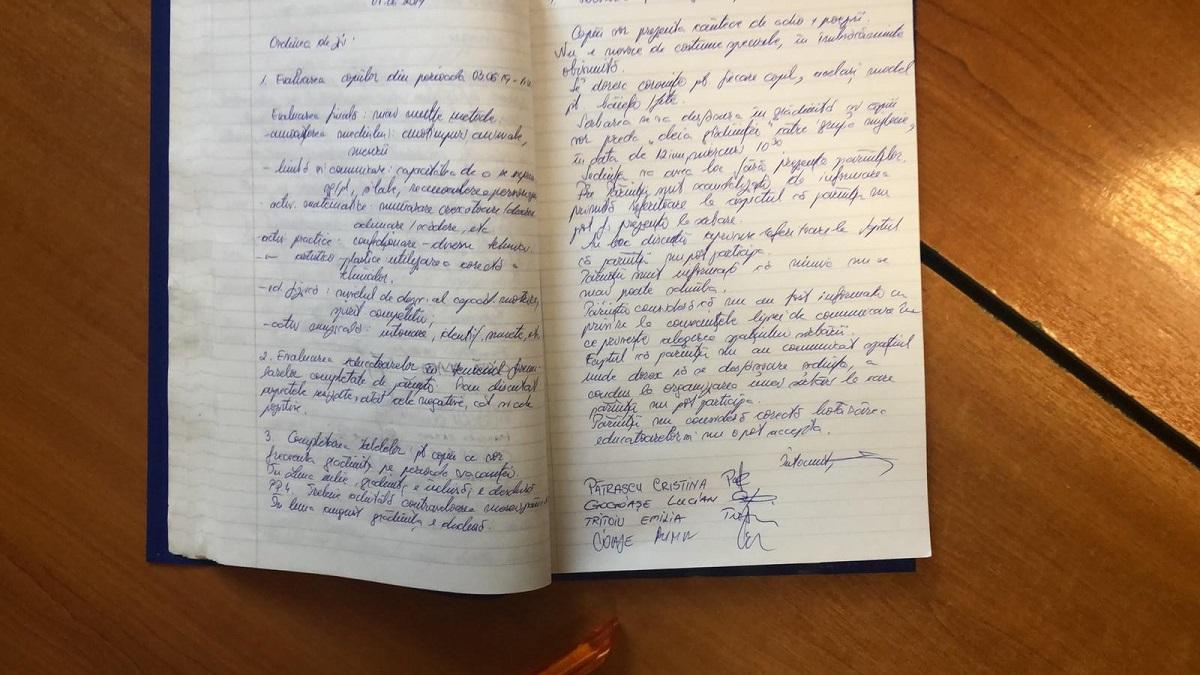 Ordinea de zi:
1. Evaluarea copiilor din perioada 03.06.19 -
Evaluarea finală: mai multe metode:
- cunoașterea mediului: anotimpuri, animale,
meserii
- limbă și comunicare: capacitatea de a se
silabe, recunoașterea personajelor
activ. matematice: numărare crescătoare/descresc.
adunare/scădere, etc
- activ practice: confecționare - diverse tehnici
- artistico plastice utilizarea corectă a
tehnicilor.
- ed. fizică: nivelul de dezv. al capacit. motrice,
spirit competitiv;
- activ muzicală: intonare, identif. sunete, etc.
2. Evaluarea educatoarelor
completate de părinți. S-au discutat
aspectele atât cele negative, cât și cele
pozitive.
3. Completarea tabelelor pt copiii ce vor
frecventa grădinița pe perioada vacanței.
În luna iulie, grădinița e închisă, e deschisă
PP4. Trebuie achitată contravaloarea
În luna august grădinița e închisă.
Copiii vor prezenta cântece de adio + poezii.
Nu e nevoie de costume speciale, în îmbrăcămintea
obișnuită.
Se doresc coronițe pt. fiecare copil, același model
pt. băieți/fete.
Serbarea se va desfășura în grădiniță iar copiii
vor preda "cheia grădiniței" către grupa mijlocie,
în data de 12 iunie, miercuri 10 30
Ședința va avea loc fără prezența părinților.
Părinții sunt scandalizați de informarea
primită referitoare la aspectul că părinții nu
pot fi prezenți la serbare.
Au loc discuții aprinse referitoare la faptul
că părinții nu pot participa.
Părinții sunt informați că nimic nu se
mai poate schimba.
Părinții consideră că nu au fost informați cu
privire la consecințele lipsei de comunicare în
ce privește alegerea spațiului serbării.
Faptul că părinții nu au comunicat spațiul
unde doresc să se desfășoare ședința, a
condus la organizarea unei serbări la care
părinții nu pot participa.
Părinții nu consideră corectă hotărârea
educatoarelor și nu o pot accepta.
Întocmit,
PĂTRAȘCU CRISTINA
LUCIAN
EMILIA